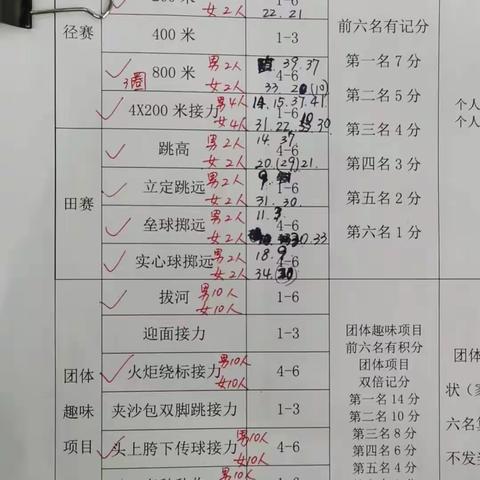 女2人 22.21 1-6
径赛
400米 1-3
前六名有记分
800米 男2人 39.37 4-6
3圈 女2人 33.
第一名7分
4X200米接力 男4人 14.15.37.41 1-6
女4人 31.22. .30
第二名5分
第三名4分
个人
个人
田赛
跳高 男2人 14.37 4-6
女2人 20.(29)21.
第四名3分
立定跳远 男2人 1-6
女2人 31.30
第五名2分
垒球掷远 男2人 11.3 4-6
女2人 .33
第六名1分
实心球掷远 男2人 18.9 4-6
女2人 34.
团体
趣味
项目
拔河 男10人 1-6
女10人
迎面接力 1-3
火炬绕标接力 男10人 4-6
女10人
夹沙包双脚跳接力 1-3
头上胯下传球接力 男10人 4-6
女10人
男10人
团体趣味项目
前六名有积分
团体项目
双倍记分
第一名14分
第二名10分
第三名8分
第四名6分
第五名4分
团体
状（家
六名第
不发